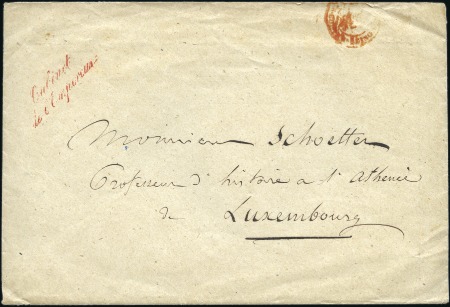 Cabinet
de l'Empereur
Monsieur Schoetter
Professeur d'histoire a l'Athénée
de
Luxembourg